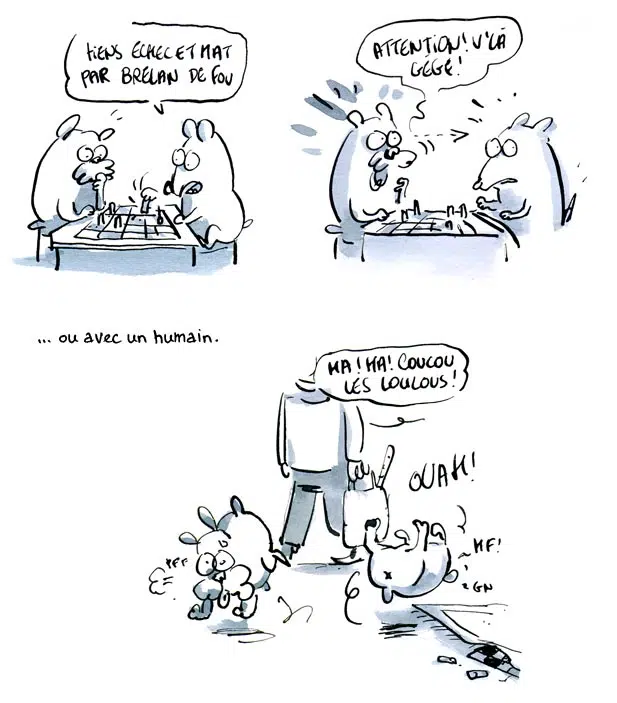 TIENS ÉCHEC ET MAT
PAR BRELAN DE FOU
ATTENTION! V'LÀ
GÉGÉ!
... ou avec un humain.
HA! HA! COUCOU
LES LOULOUS!
OUAH!
PFF
HF!
GN